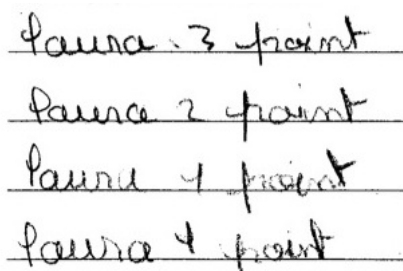 Laura 3 point
Laura 2 point
Laura 1 point
Laura 1 point